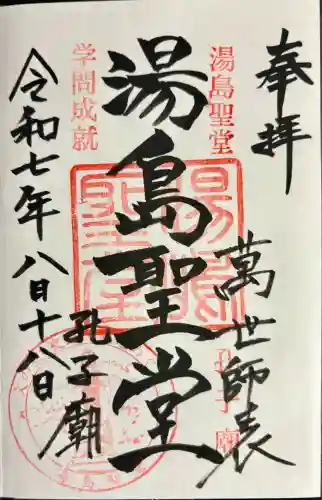 奉拝
湯島聖堂
萬世師表
湯島聖堂
湯島聖堂
孔子廟
学問成就
令和七年八月十八日